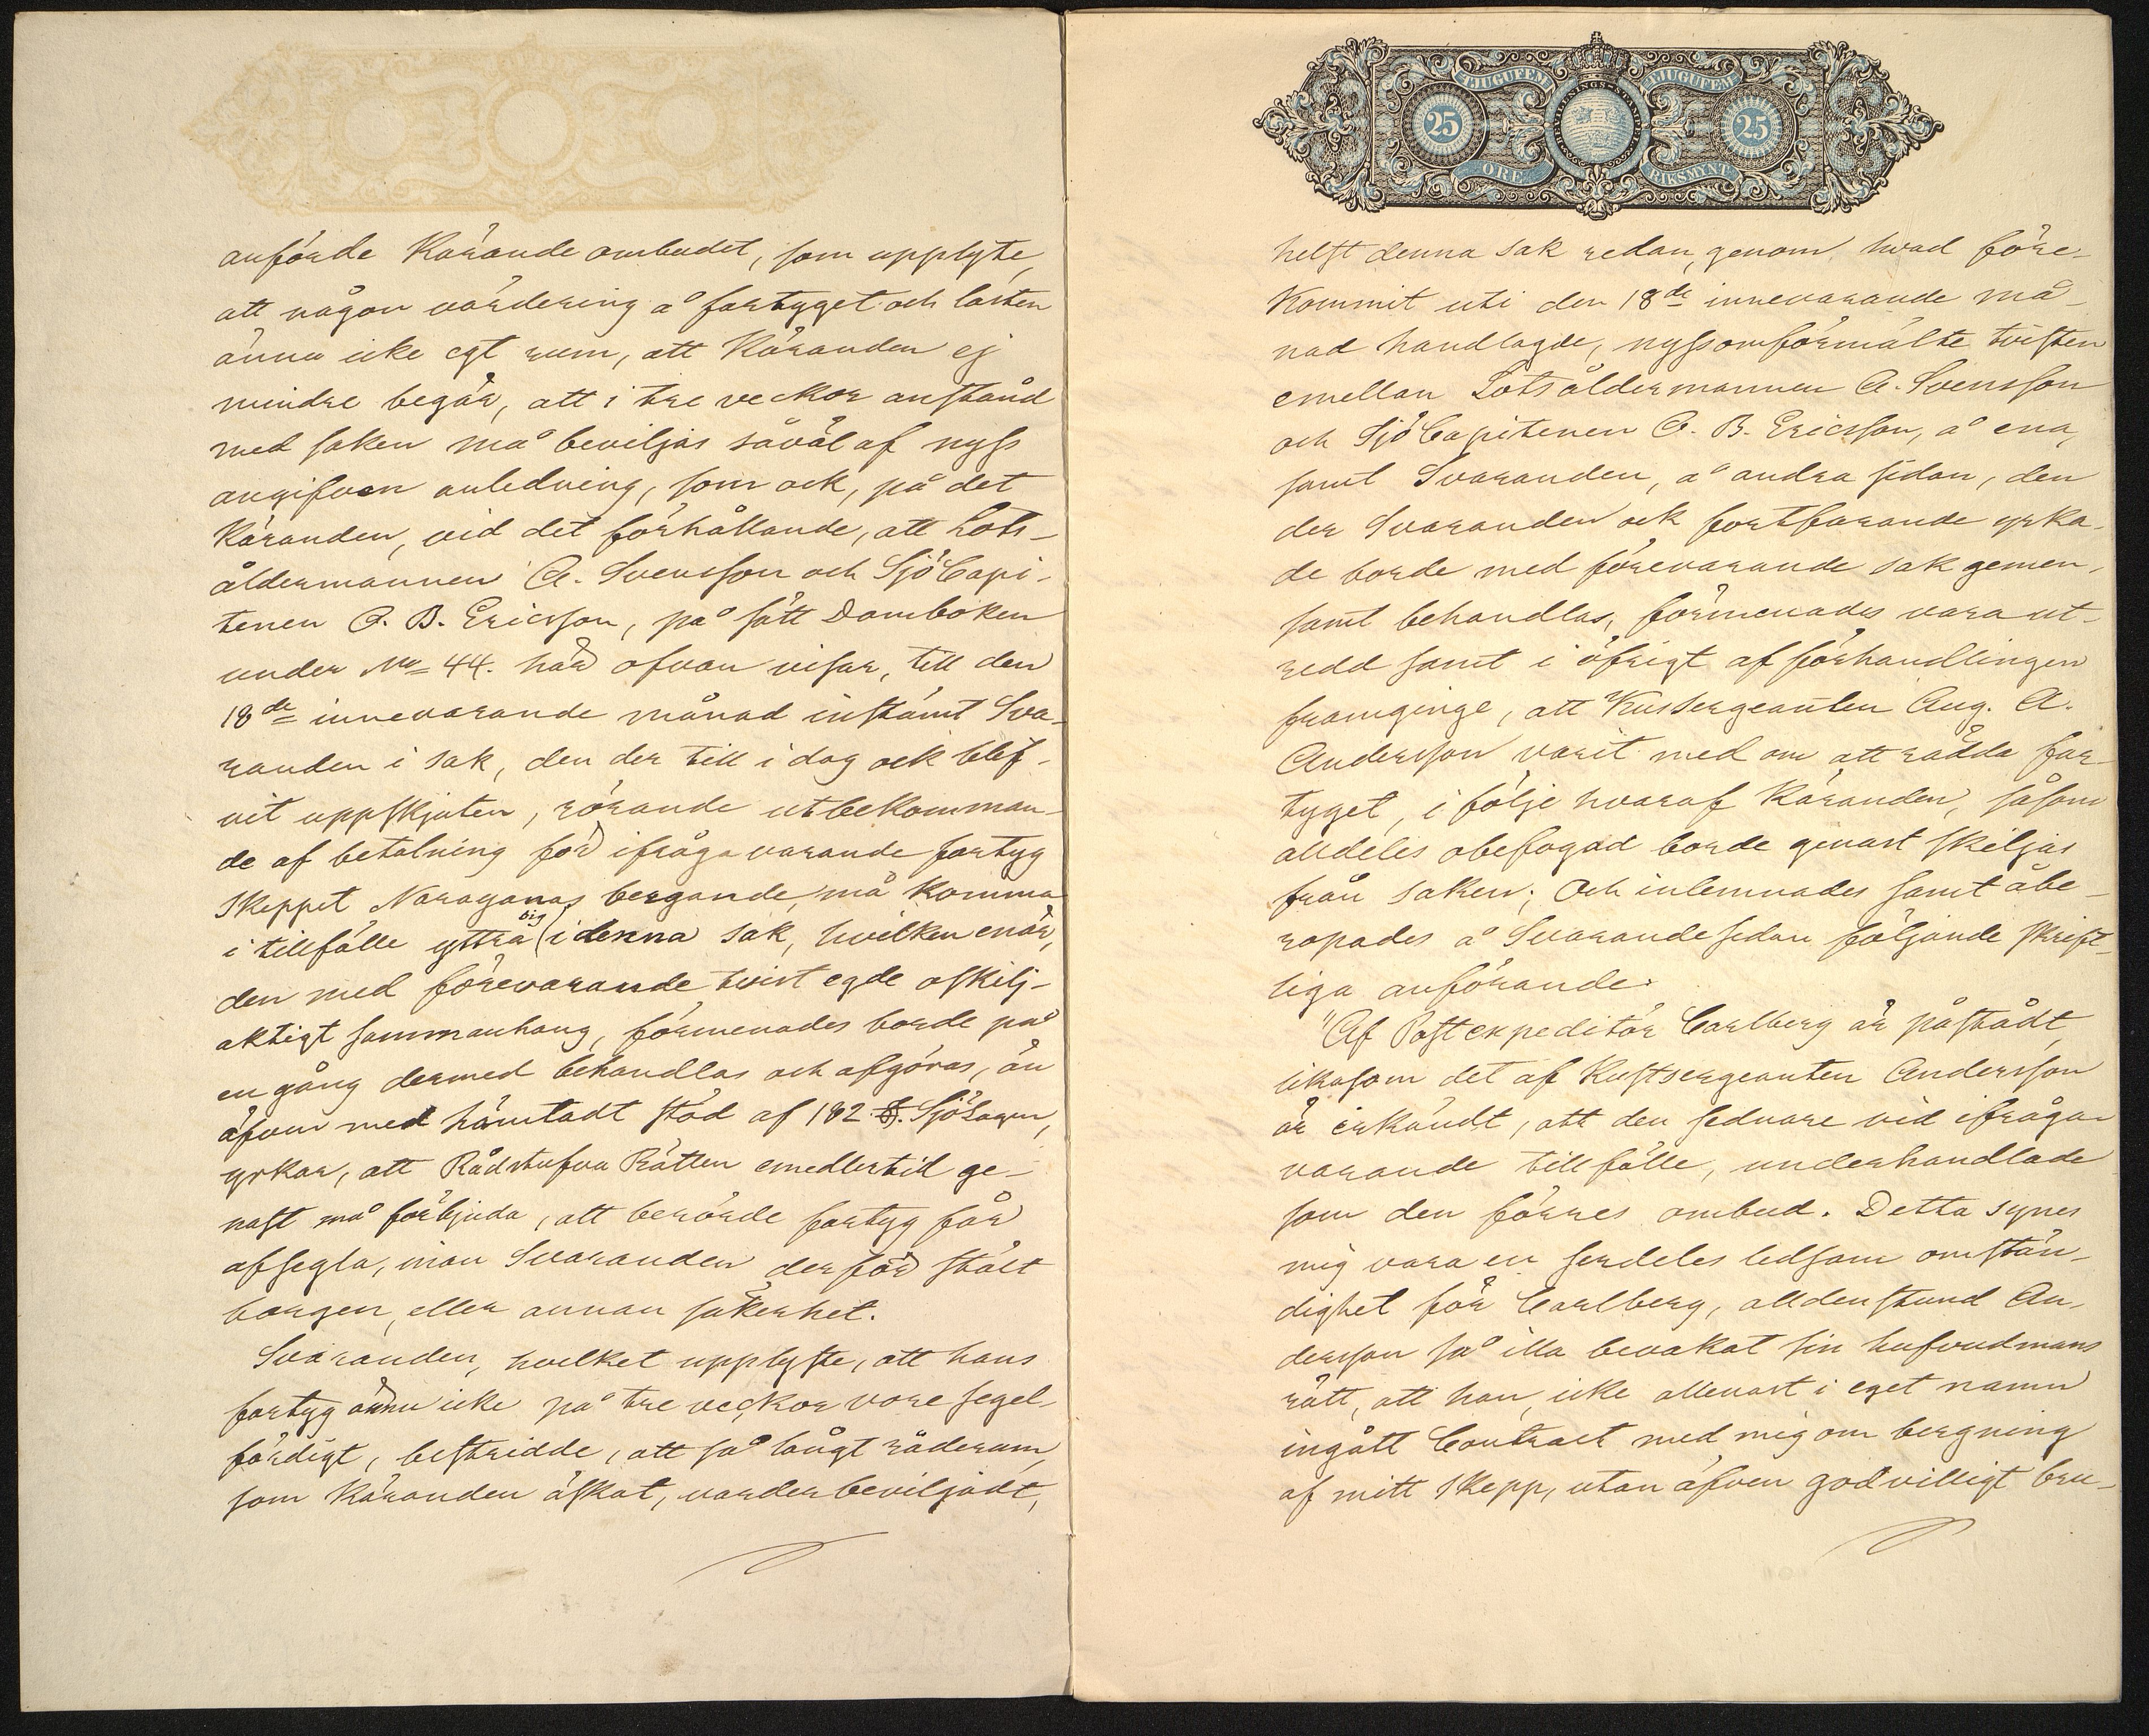 anförde Kärande ombudet, som upplyste,
att någon värdering å fartyget och lasten
ännu icke egt rum, att Käranden ej
mindre begär, att i tre veckor anstånd
med saken må beviljas såväl af nyss
angifven anledning, som ock, på det
Käranden, vid det förhållande, att Lots-
åldermannen A. Svensson och SjöCapi-
tenen C. B. Ericsson, på sätt Domboken
under No 44. här ofvan visar, till den
18de innevarande månad instämt Sva-
randen i sak, den der till i dag ock blif-
vit uppskjuten, rörande utbekomman-
de af betalning för ifrågavarande fartyg
Skeppet Narayanas bergande, må komma
i tillfälle yttra sig i denna sak, hvilken enär,
den med förevarande tvist egde oskilj-
aktigt sammanhang, förmenades borde på
en gång dermed behandlas och afgöras, än
äfven med hämtadt stöd af 182 §. SjöLagen,
yrkar, att Rådstufvu Rätten emedlertid ge-
nast må förbjuda, att berörde fartyg får
afsegla, innan Svaranden derför stält
borgen, eller annan säkerhet.
Svaranden, hvilket upplyste, att hans
fartyg ännu icke på tre veckor vore segel-
färdigt, bestridde, att så långt råderum,
som Käranden äskat, varder beviljadt,
TJUGUFEM TJUGUFEM
25 BEVILLNINGS-STÄMPEL 25
ÖRE RIKSMYNT
helst denna sak redan, genom hvad före-
kommit uti den 18de innevarande må-
nad handlagde, nyssomförmälte tvisten
emellan Lotsåldermannen A. Svensson
och SjöCapitenen C. B. Ericsson, å ena,
samt Svaranden, å andra sidan, den
der Svaranden ock fortfarande yrka-
de borde med förevarande sak gemen-
samt behandlas, förmenades vara ut-
redd samt i öfrigt af förhandlingen
framginge, att Kustsergeanten Aug. A.
Andersson varit med om att rädda far-
tyget, i följe hvaraf Käranden, såsom
alldeles obefogad borde genast skiljas
från saken; Och inlemnades samt åbe-
ropades å Svarandesidan följande skrift-
liga anförande:
"Af Postexpeditör Carlberg är påstådt,
likasom det af Kustsergeanten Andersson
är erkändt, att den sednare vid ifråga-
varande tillfälle, underhandlade
som den förres ombud. Detta synes
mig vara en serdeles ledsam omstän-
dighet för Carlberg, alldenstund An-
dersson så illa bevakat sin hufvudmans
rätt, att han icke allenast i eget namn
ingått Contract med mig om bergning
af mitt skepp, utan äfven godvilligt bru-